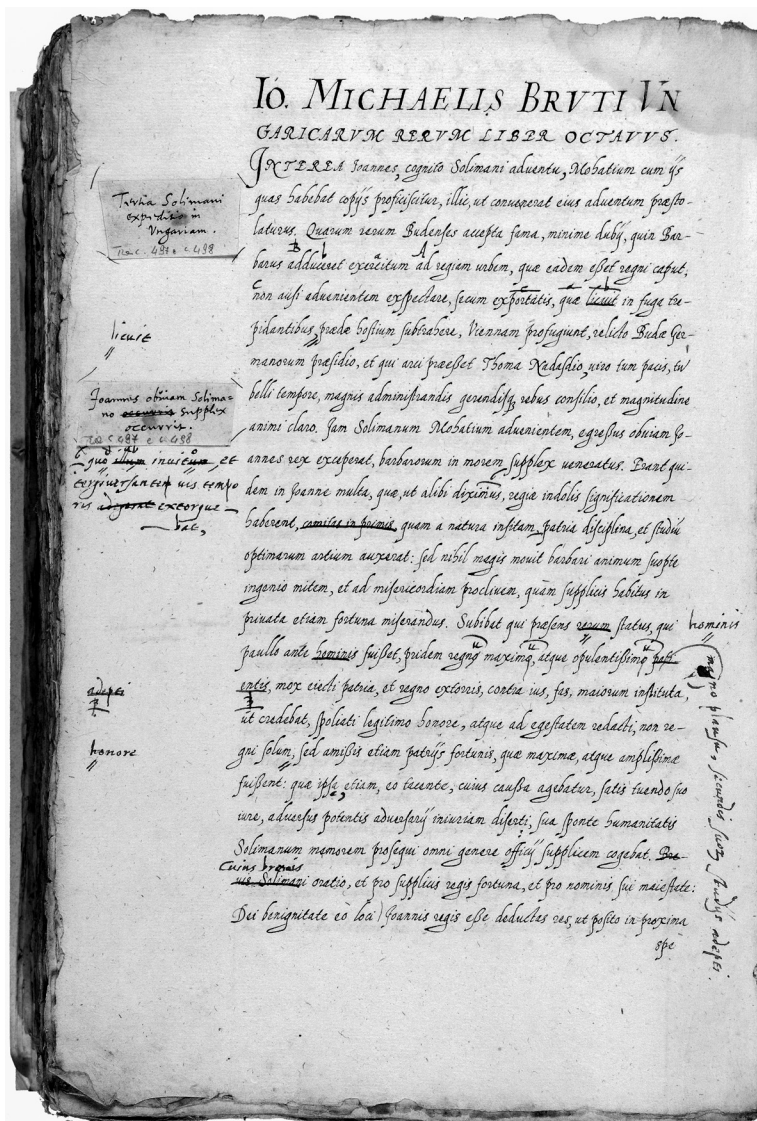 IO. MICHAELIS BRVTI VN
GARICARVM RERVM LIBER OCTAVVS.
INTEREA Joannes, cognito Solimani aduentu, Mohatium cum ijs
quas habebat copijs proficiscitur, illic, ut conuenerat eius aduentum præsto-
laturus. Quarum rerum Budenses accepta fama, minime dubij, quin Bar-
barus adduceret exercitum ad regiam urbem, quæ eadem esset regni caput;
non ausi aduenientem exspectare, secum exportatis, quæ licuit in fuga tre-
pidantibus prædæ hostium subtrahere, Viennam profugiunt, relicto Budæ Ger-
manorum præsidio, et qui arci præesset Thoma Nadasdio, uiro tum pacis, tū
belli tempore, magnis administrandis gerendisq. rebus consilio, et magnitudine
animi claro. Jam Solimanum Mohatium aduenientem, egressus obuiam Jo-
annes rex exceperat, barbarorum in morem supplex ueneratus. Erant qui-
dem in Joanne multa, quæ, ut alibi diximus, regiæ indolis significationem
haberent, comitas in primis, quam a natura insitam patria disciplina, et studiū
optimarum artium auxerat: sed nihil magis mouit barbari animum suopte
ingenio mitem, et ad misericordiam procliuem, quam supplicis habitus in
priuata etiam fortuna miserandus. Subibat qui præsens rerum status, qui
paullo ante hominis fuisset, pridem regnq maximq, atque opulentissimq poti
entis, mox eiecti patria, et regno extorris, contra ius, fas, maiorum instituta,
ut credebat, spoliati legitimo honore, atque ad egestatem redacti, non re-
gni solum, sed amissis etiam patrijs fortunis, quæ maximæ, atque amplissimæ
fuissent: quæ ipsa etiam, eo tacente, cuius caussa agebatur, satis tuendo suo
iure, aduersus potentis aduersarij iniuriam diserti, sua sponte humanitatis
Solimanum memorem prosequi omni genere officij supplicem cogebat. Bre-
Cuius breuis
uis Solimani oratio, et pro supplicis regis fortuna, et pro nominis sui maiestate:
Dei benignitate eò loci Joannis regis esse deductas res, ut posito in proxima
spe
Tertia Solimani
expeditio in
Vngariam.
licuit
Joannes obuiam Solima-
no occurris supplex
occurrit.
quo illum inuitum et
tergiuersantem uis tempo
ris adgerat extorque
bat,
adepti
honore
hominis
magno plausu, secundis suorū studijs adepti.